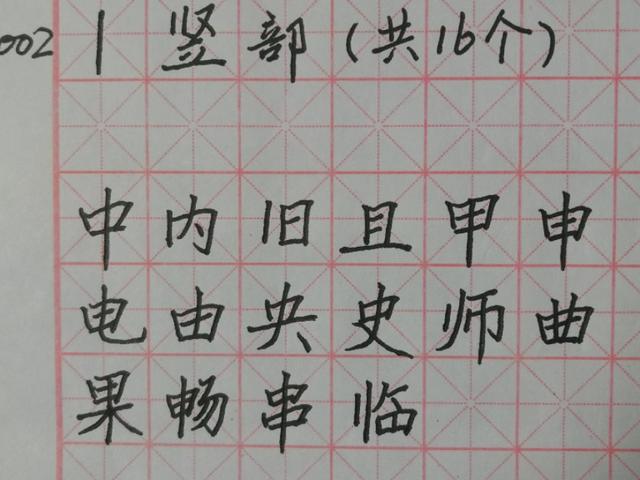 002 丨 竖部（共16个）
中内旧且甲申
电由央史师曲
果畅串临